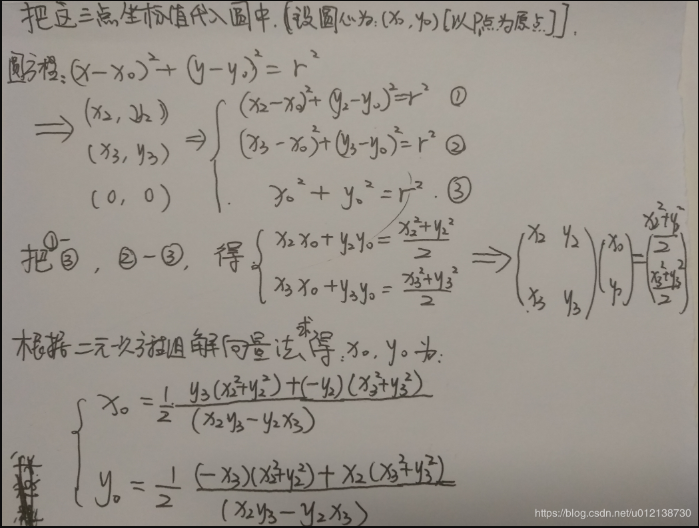 把这三点坐标值代入圆中.(设圆心为:(x₀, y₀)[以P₁点为原点]).
圆方程:(x-x₀)²+(y-y₀)²=r²
⇒ (x₂, y₂) (x₃, y₃) (0, 0) ⇒ {
(x₂-x₀)²+(y₂-y₀)²=r² ①
(x₃-x₀)²+(y₃-y₀)²=r² ②
x₀²+y₀²=r². ③
把①-③, ②-③, 得 {
x₂x₀+y₂y₀=(x₂²+y₂²)/2
x₃x₀+y₃y₀=(x₃²+y₃²)/2
⇒ (x₂ y₂; x₃ y₃)(x₀; y₀)=((x₂²+y₂²)/2; (x₃²+y₃²)/2)
根据二元一次方程组解向量法求得:x₀, y₀为:
x₀ = 1/2 (y₃(x₂²+y₂²)+(-y₂)(x₃²+y₃²))/(x₂y₃-y₂x₃)
y₀ = 1/2 ((-x₃)(x₂²+y₂²)+x₂(x₃²+y₃²))/(x₂y₃-y₂x₃)
https://blog.csdn.net/u012138730